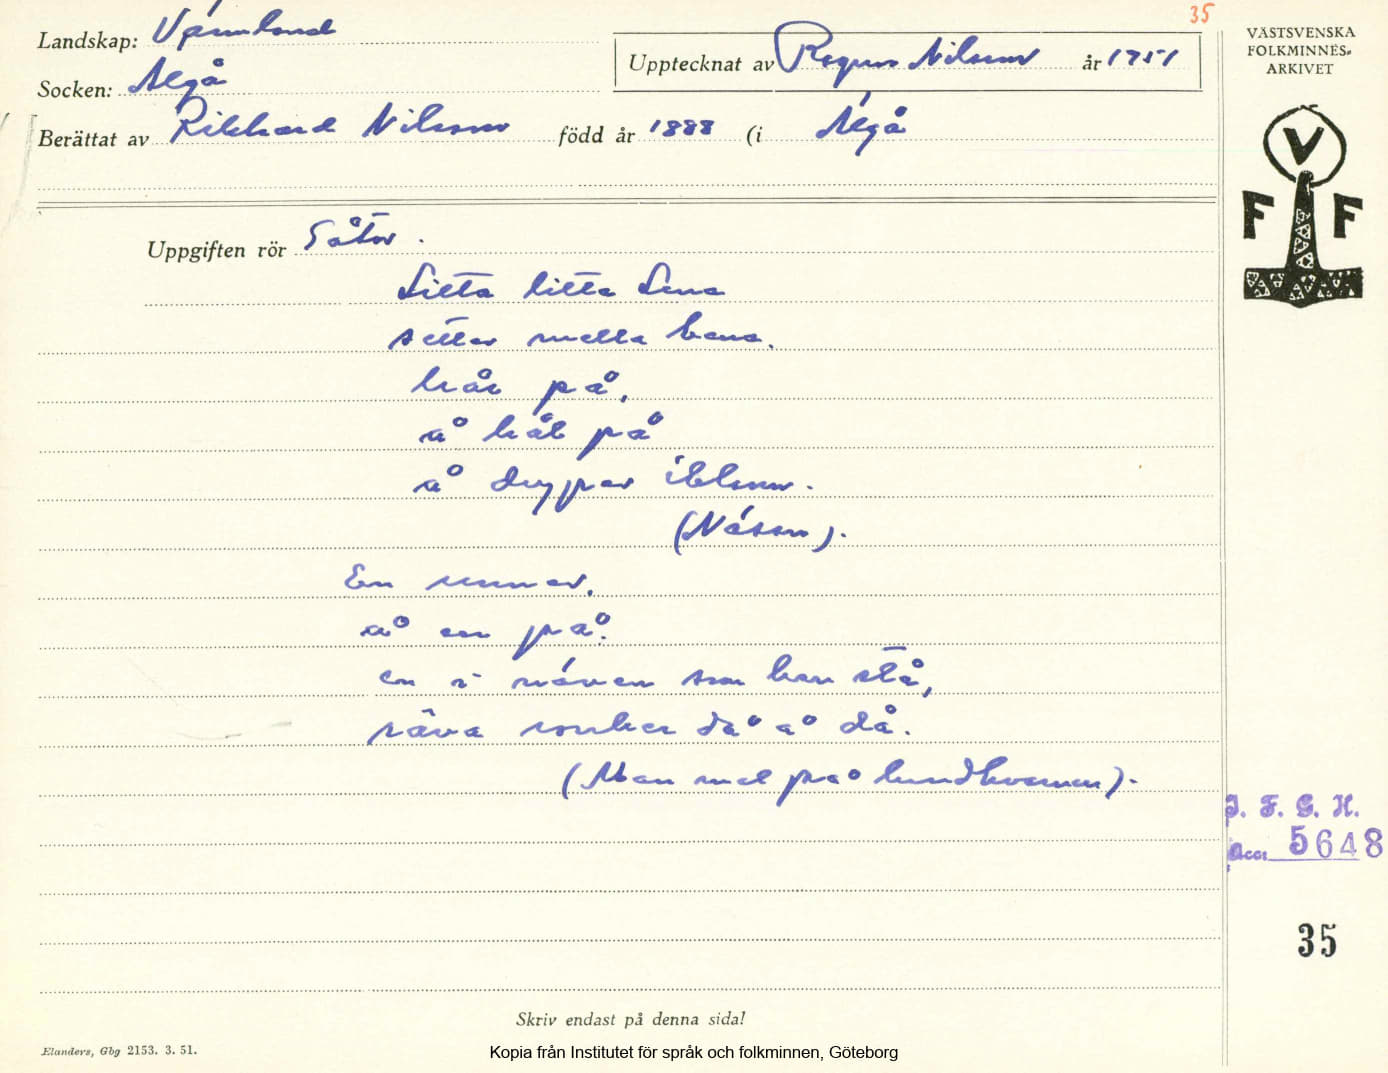 35
Landskap: Värmland
Upptecknat av Ragnar Nilsson år 1951
VÄSTSVENSKA
FOLKMINNES-
ARKIVET
Socken: Älgå
Berättat av Rikhard Nilsson född år 1888 (i Älgå
V
F F
Uppgiften rör Gåtor.
Litta litta Lena
setter mella bena.
hår på,
å hål på
å dryper iblann.
(Näsan).
En unner,
å en på,
en i näven som han stå,
räva sonker då å då.
(Man mal på handkvarnen).
I. F. G. H.
Acc: 5648
35
Skriv endast på denna sida!
Elanders, Gbg 2153. 3. 51.
Kopia från Institutet för språk och folkminnen, Göteborg